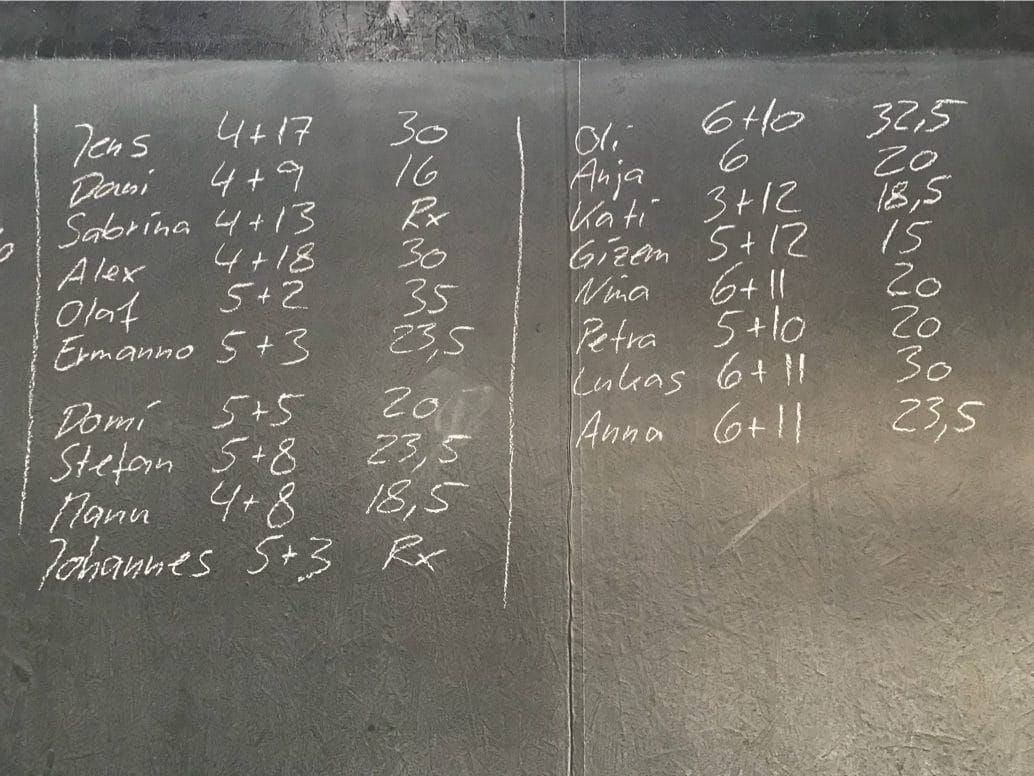 Jens 4+17 30
Domi 4+9 16
Sabrina 4+13 Rx
Alex 4+18 30
Olaf 5+2 35
Ermanno 5+3 23,5
Domi 5+5 20
Stefan 5+8 23,5
Manu 4+8 18,5
Johannes 5+3 Rx
Oli 6+10 32,5
Anja 6 20
Kati 3+12 18,5
Gizem 5+12 15
Nina 6+11 20
Petra 5+10 20
Lukas 6+11 30
Anna 6+11 23,5